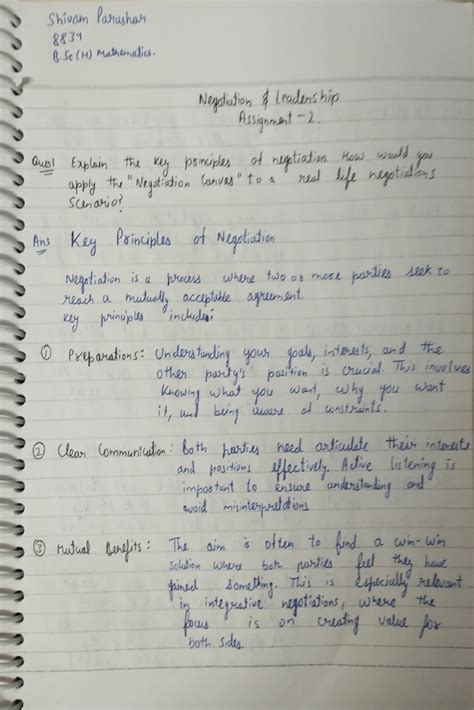 Shivam Parashar
8834
B.Sc (H) Mathematics.
Negotiation & Leadership
Assignment - 2.
Ques1 Explain the key principles of negotiation How would you
apply the "Negotiation Canvas" to a real life negotiations
scenario?
Ans Key Principles of Negotiation
Negotiation is a process where two or more parties seek to
reach a mutually acceptable agreement.
Key principles include:
① Preparations: Understanding your goals, interests, and the
other party's position is crucial. This involves
knowing what you want, why you want
it, and being aware of constraints.
② Clear Communication: Both parties need articulate their interests
and positions effectively. Active listening is
important to ensure understanding and
avoid misinterpretations
③ Mutual Benefits: The aim is often to find a win-win
solution where both parties feel they have
gained something. This is especially relevant
in integrative negotiations, where the
focus is on creating value for
both sides.